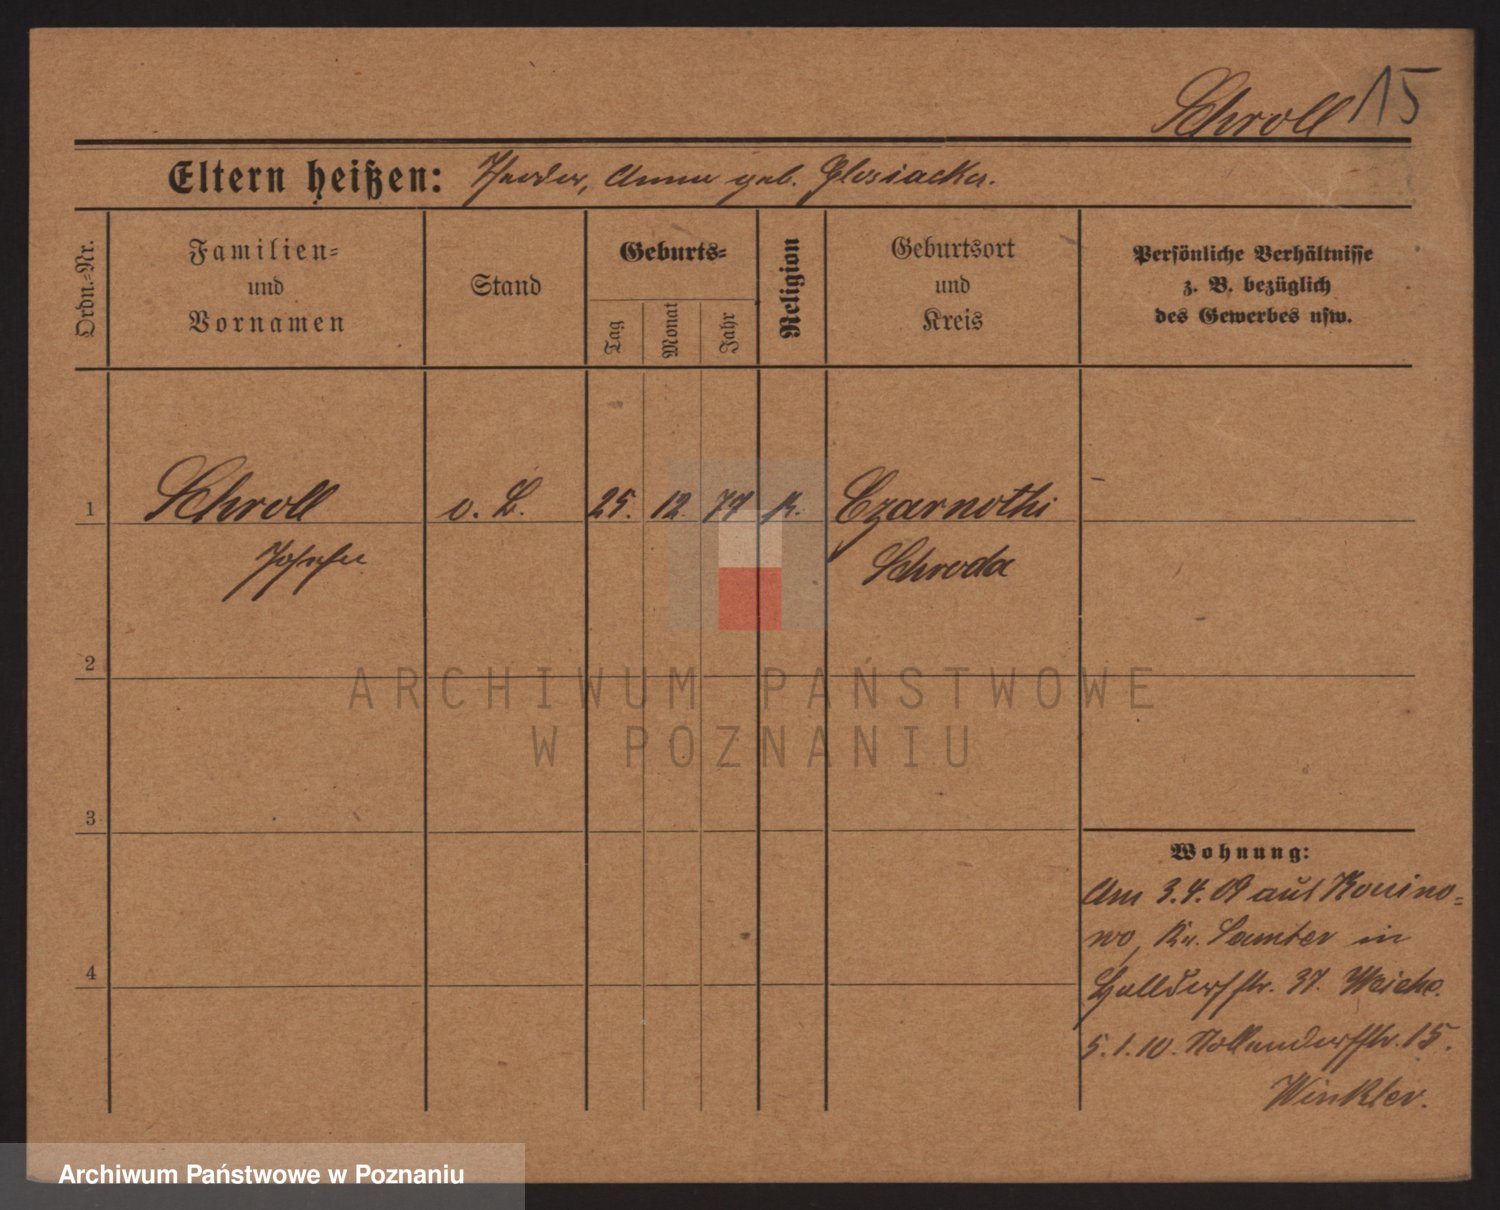 Schroll 15
Eltern heißen: Theodor, Anna geb. Glosiacka.
Ordn.-Nr.
Familien-
und
Vornamen
Stand
Geburts-
Tag
Monat
Jahr
Religion
Geburtsort
und
Kreis
Persönliche Verhältnisse
z. B. bezüglich
des Gewerbes usw.
1 Schroll o. B. 25. 12. 77 k. Czarnothi
Josefa Schroda
2
3
4
Wohnung:
Am 3.4.09 aus
wo, Kr. Samter in
37.
5.1.10. Nollendorffstr. 15.
Winkler.
ARCHIWUM PAŃSTWOWE
W POZNANIU
Archiwum Państwowe w Poznaniu